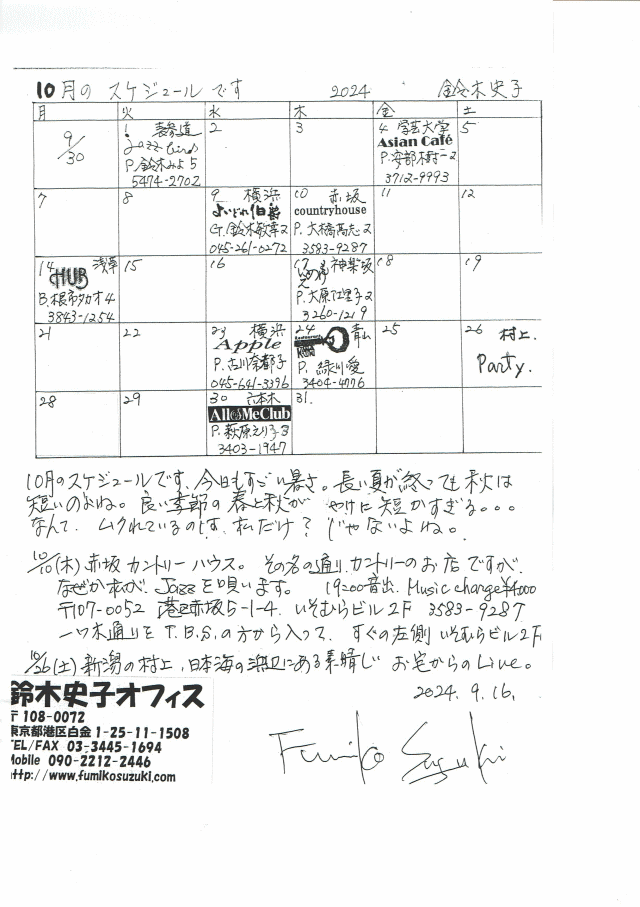 10月の スケジュール です 2024 鈴木史子
月 火 水 木 金 土
9/30
1 表参道
Jazz Bird
P. 鈴木みよ 5
5474-2702
2
3
4 学芸大学
Asian Café
P. 安部
3712-9993
5
7
8
9 横浜
よいどれ伯爵
G. 鈴木
045-261-0272
10 赤坂
countryhouse
P. 大橋高志 2
3583-9287
11
12
14 浅草
HUB
B. 根市タカオ 4
3843-1254
15
16
17 神楽坂
P. 大原江里子 2
3260-1219
18
19
21
22
23 横浜
Apple
P. 古川奈都子
045-641-3396
24 青山
P. 緑川愛
3404-4776
25
26 村上.
Party.
28
29
30 六本木
All of Me Club
P. 萩原えり子 3
3403-1947
31.
10月のスケジュールです、今日もすごい暑さ。長い夏が終っても秋は
短いのよね。良い季節の春と秋が やけに短かすぎる。。。
なんて、ムクれているのは、私だけ? じゃないよね。
10/10(木) 赤坂 カントリー ハウス。 その名の通り、カントリーのお店ですが、
なぜか私が、Jazzを唄います。 19:00音出. Music charge ¥4000
〒107-0052 港区赤坂5-1-4. いそむらビル2F 3583-9287
一ツ木通りを T.B.S.の方から入って、すぐの左側 いそむらビル2F
10/26(土) 新潟の村上、日本海の浜辺にある素晴し お宅からのLive。
2024. 9. 16.
Fumiko Suzuki
鈴木史子オフィス
〒108-0072
東京都港区白金 1-25-11-1508
TEL/FAX 03-3445-1694
Mobile 090-2212-2446
http://www.fumikosuzuki.com